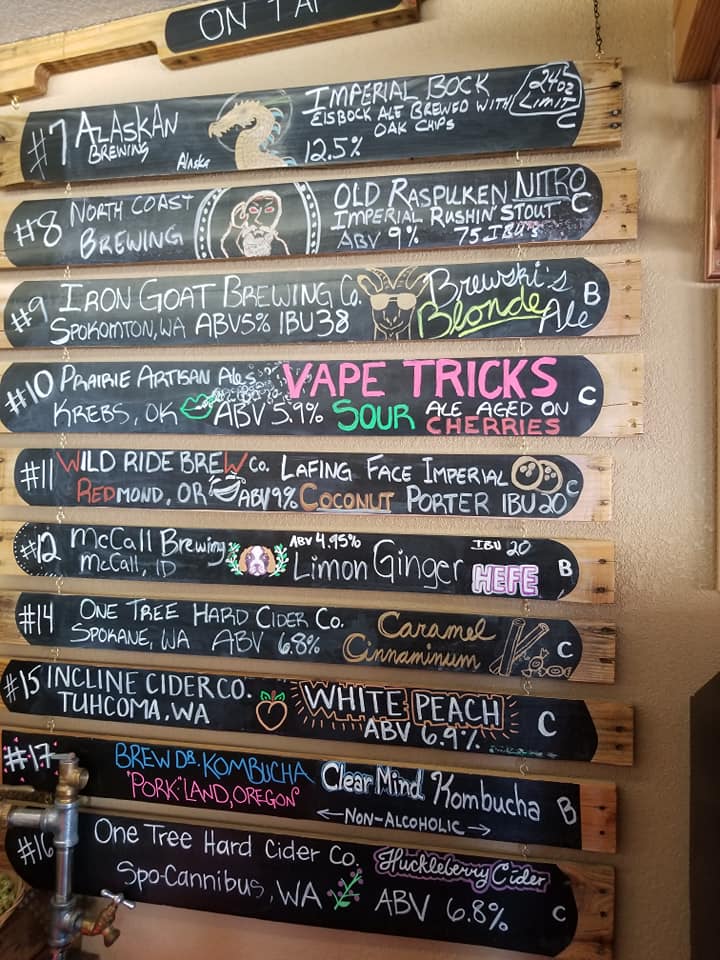 ON TAP
#7 ALASKAN BREWING Alaska
IMPERIAL BOCK
EISBOCK ALE BREWED WITH
OAK CHIPS
12.5%
24oz LIMIT
C
#8 NORTH COAST
BREWING
OLD RASPUKEN NITRO
IMPERIAL RUSHIN' STOUT
ABV 9% 75 IBU's
C
#9 IRON GOAT BREWING Co.
SPOKOMTON, WA ABV 5% IBU 38
Brewski's
Blonde Ale
B
#10 PRAIRIE ARTISAN ALES VAPE TRICKS
KREBS, OK ABV 5.9% SOUR ALE AGED ON
CHERRIES
C
#11 WILD RIDE BREW Co. LAFING FACE IMPERIAL
REDMOND, OR ABV 9% COCONUT PORTER IBU 20
C
#12 McCall Brewing
McCALL, ID
ABV 4.95% IBU 20
Limon Ginger HEFE
B
#14 ONE TREE HARD CIDER Co.
SPOKANE, WA ABV 6.8%
Caramel
Cinnaminum
C
#15 INCLINE CIDER CO.
TUHCOMA, WA
WHITE PEACH
ABV 6.9%
C
#17 BREW DR. KOMBUCHA
"PORK"LAND, OREGON
Clear Mind Kombucha
NON-ALCOHOLIC
B
#16 One Tree Hard Cider Co.
Spo-Cannibus, WA
Huckleberry Cider
ABV 6.8%
C